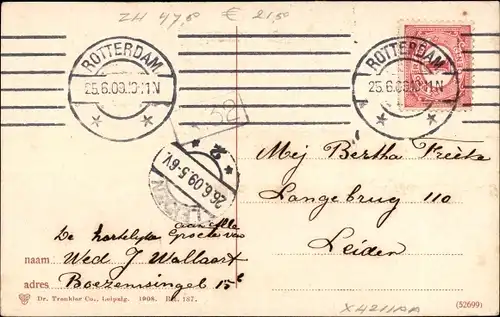 ZH 47,50 € 21,50
ROTTERDAM
25.6.09.10-11N
ROTTERDAM
25.6.09.10-11N
52
2
26.6.09.5-6V
LEIDEN
Mej Bertha
Langebrug 110
Leiden
De hartelijke Groete van
aan Alle
naam Wed J Wallaart
adres Boezemsingel 15b
Dr. Trenkler Co., Leipzig. 1908. Rtt. 187.
X4211AA
(52699)